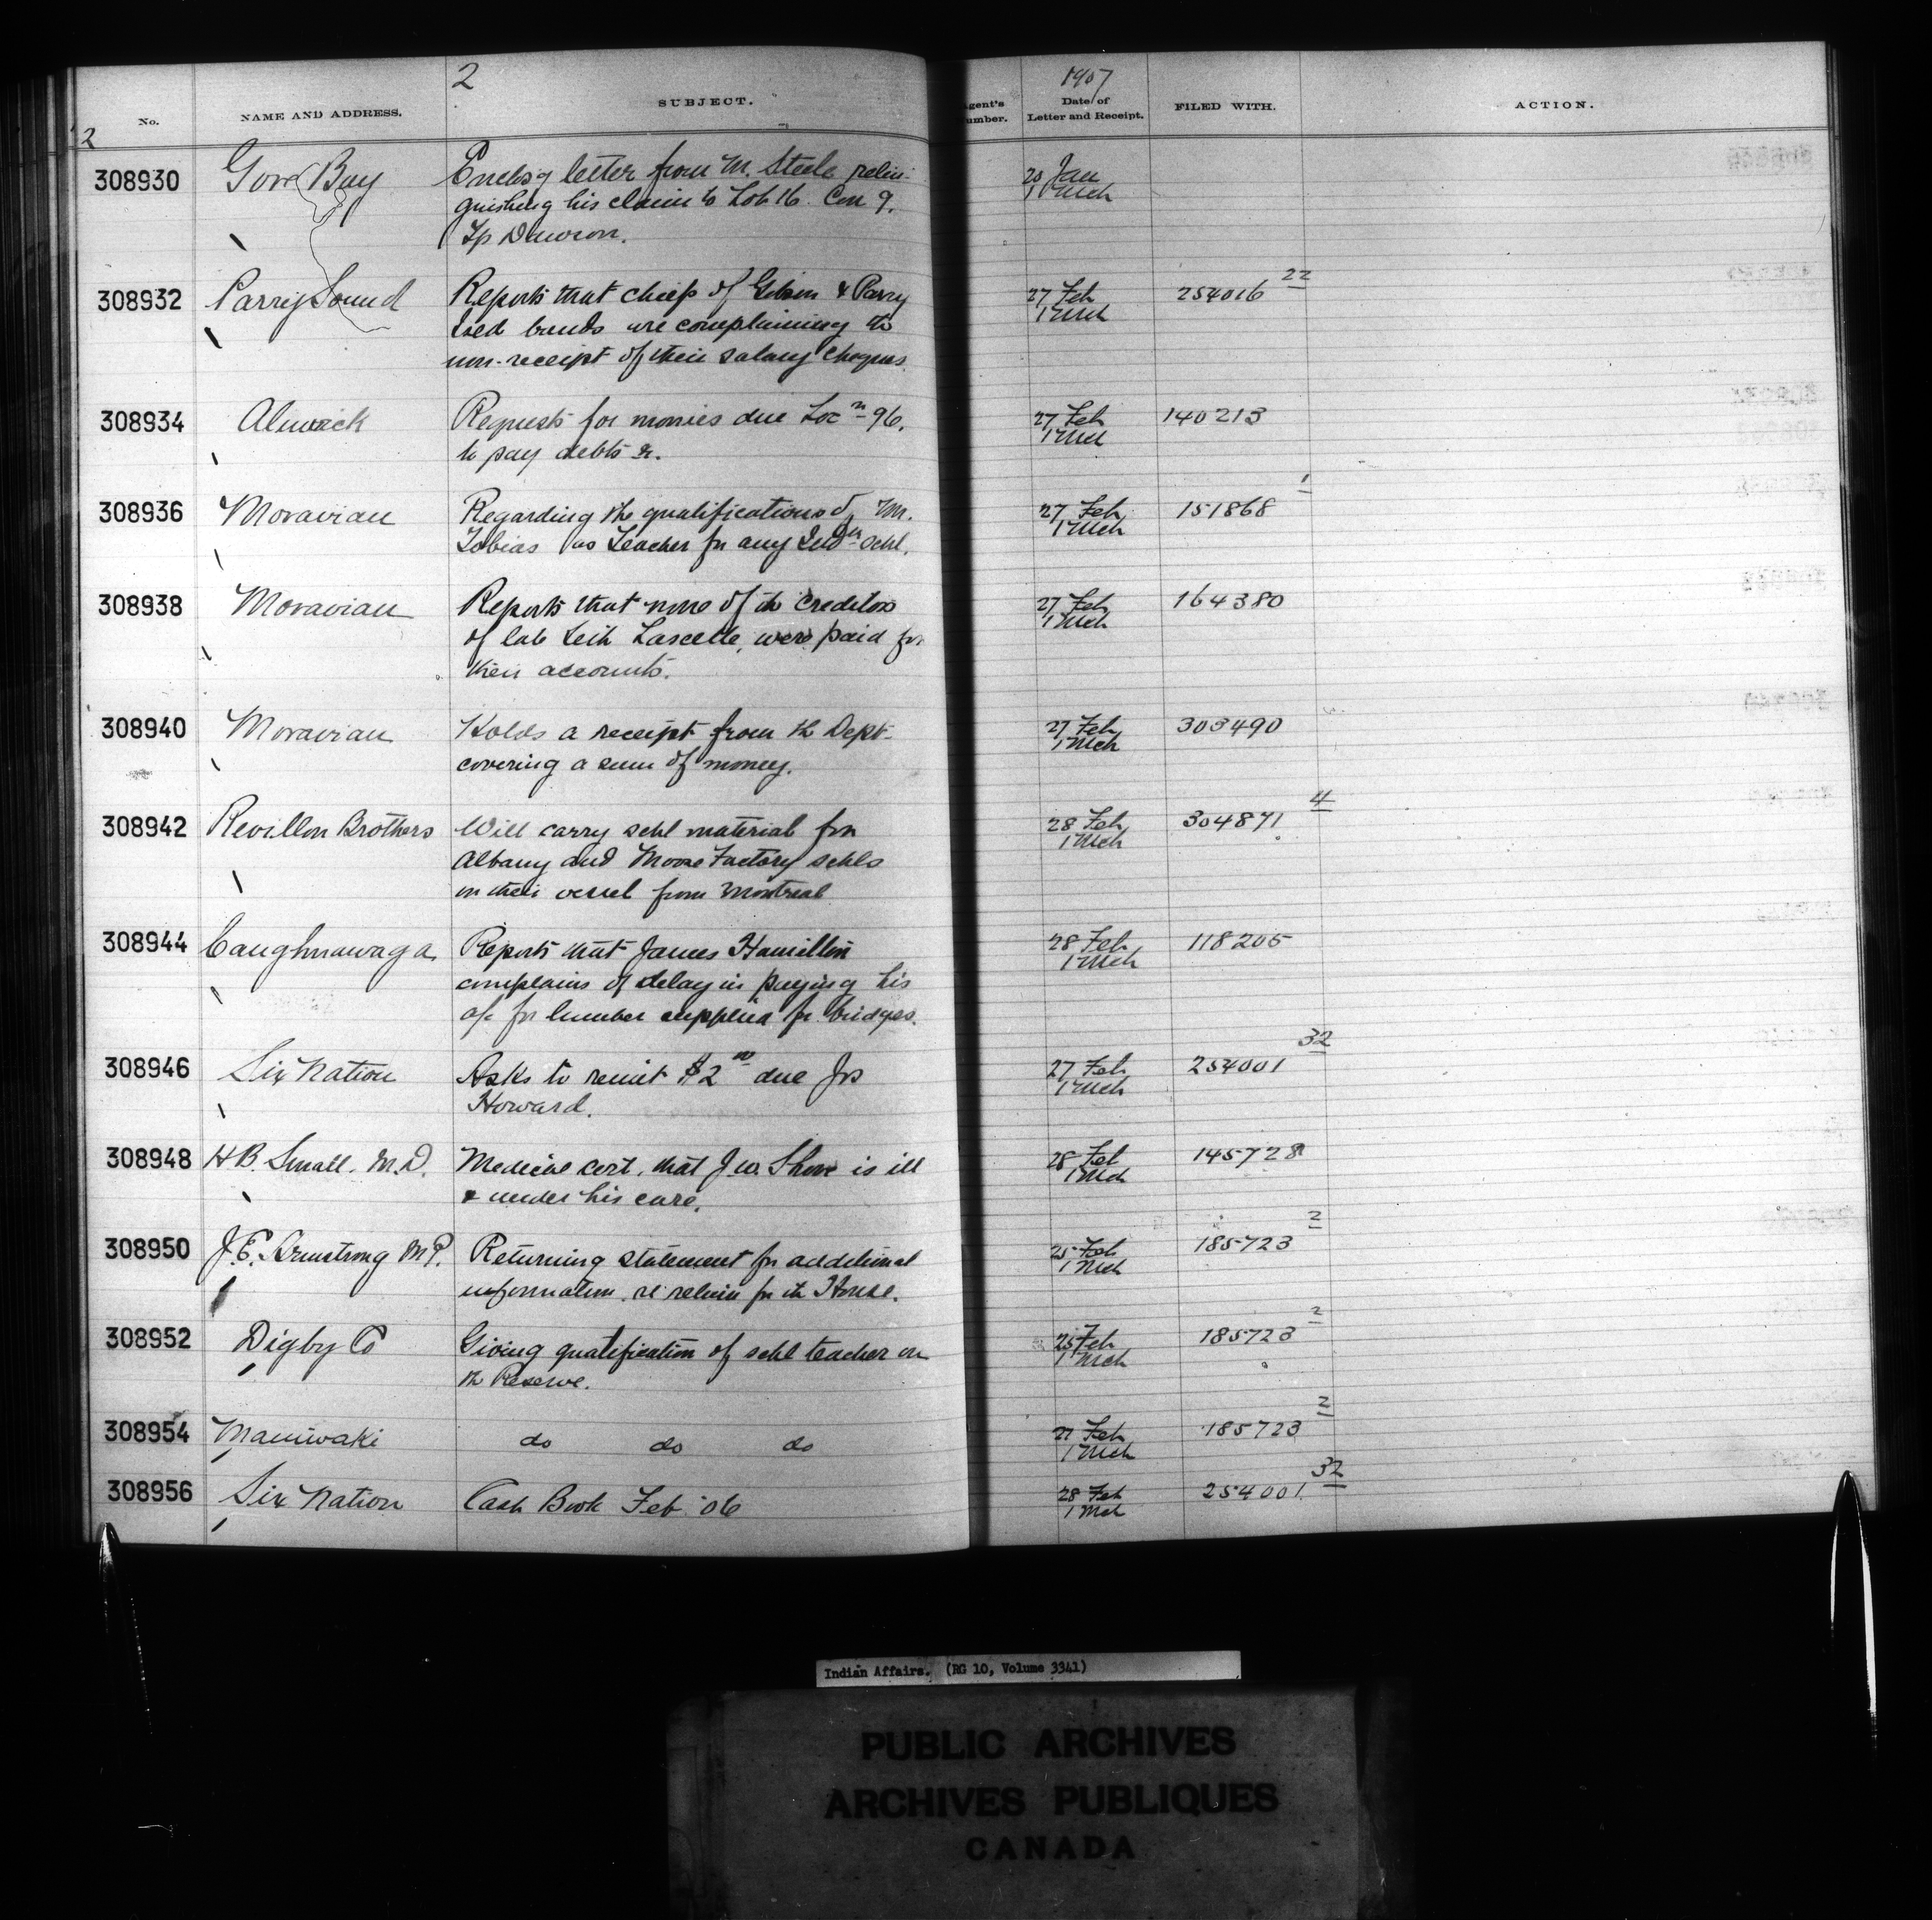 2
1907
No.
NAME AND ADDRESS.
SUBJECT.
Agent's
Number.
Date of
Letter and Receipt.
FILED WITH.
ACTION.
2
308930 Gore Bay Enclos'g letter from M. Steele relin-
quishing his claim to Lot 16. Con 9.
Tp Dawson.
Jan
1 Mch
308932 Parry Sound Reports that chiefs of Gibson & Parry
Isld bands are complaining to
non-receipt of their salary cheques
27 Feb
1 Mch
254016 22
308934 Alnwick Requests for monies due Locn 96.
to pay debts &.
27 Feb
1 Mch
140213
308936 Moravian Regarding the qualifications of Mr.
Tobias as Teacher for any Indn schl.
27 Feb
1 Mch
151868 1
308938 Moravian Reports that none of the creditors
of late Lascelle, were paid for
their accounts.
27 Feb
1 Mch
164380
308940 Moravian Holds a receipt from the Dept
covering a sum of money.
27 Feb
1 Mch
303490
308942 Revillon Brothers Will carry schl material for
Albany and Moose Factory schls
on their vessel from Montreal
28 Feb
1 Mch
304871 4
308944 Caughnawaga Reports that James Hamilton
complains of delay in paying his
a/c for lumber supplied for bridges.
28 Feb
1 Mch
118205
308946 Six Nation Asks to remit $2 00 due Jos
Howard.
27 Feb
1 Mch
254001 32
308948 H.B. Small. M.D. Medical cert. that J.W. Shore is ill
& under his care.
28 Feb
1 Mch
145728
308950 J.E. Armstrong M.P. Returning statement for additional
information re return for the House.
25 Feb
1 Mch
185723 2
308952 Digby Co Giving qualification of schl teacher on
the Reserve.
25 Feb
1 Mch
185723 2
308954 Maniwaki do do do
27 Feb
1 Mch
185723 2
308956 Six Nation Cash Book Feb '06
28 Feb
1 Mch
254001 32
Indian Affairs. (RG 10, Volume 3341)
PUBLIC ARCHIVES
ARCHIVES PUBLIQUES
CANADA